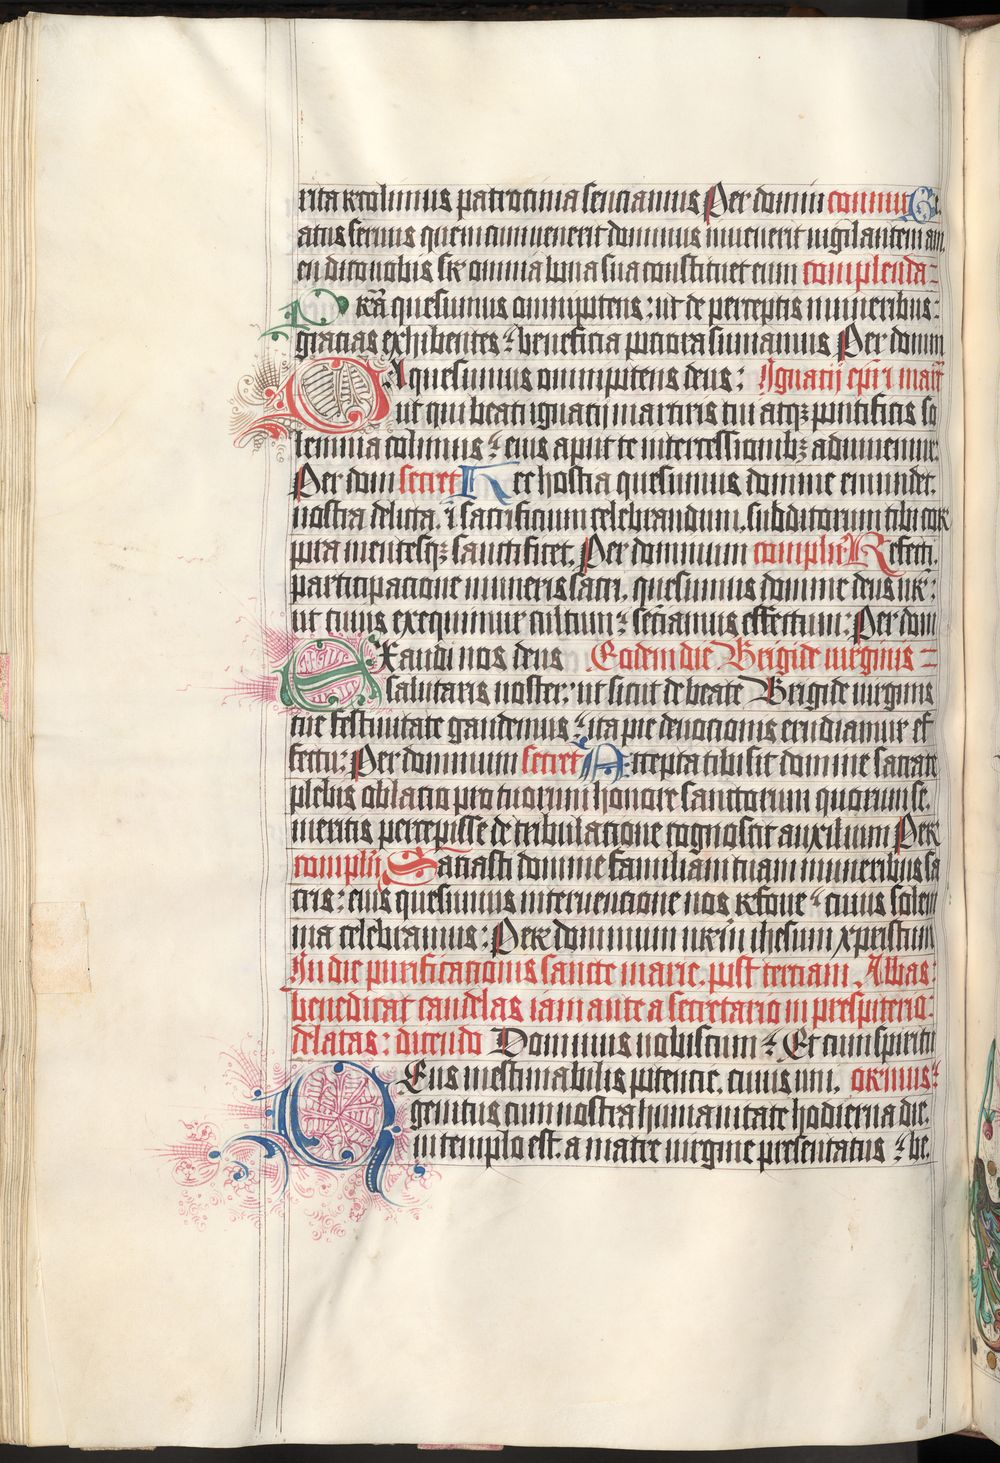 rita recolimus patrocinia senciamus Per domin commu Be
atus seruus quem cum uenerit dominus inuenerit uigilantem am
en dico uobis sr omnia bona sua constituet eum complenda
Precā quesumus omnipotens: ut de perceptis muneribus:
gracias exhibentes: beneficia pociora sumamus Per domin
DA quesumus omnipotens deus: Ignatij epī i marř
ut qui beati ignatij martiris tui atqz pontificis so
lemnia colimus: eius aput te intercessionibz adiuuemur:
Per dom secret Hec hostia quesumus domine emundet.
nostra delicta. ⁊ sacrificium celebrandum. subditorum tibi cor
pora mentesqz sanctificet. Per dominum complēn Refecti.
participacione muneris sacri. quesumus domine deus nr̄:
ut cuius exequimur cultum: senciamus effectum: Per dom
EXaudi nos deus Eodem die Brigide uirginis
salutaris noster: ut sicut de beate Brigide uirginis
tue festiuitate gaudemus: ita pie deuocionis erudiamur ef
fectu: Per dominum secret Accepta tibi sit domine sacrate
plebis oblacio pro tuorum honore sanctorum quorum se.
meritis percepisse de tribulacione cognoscit auxilium Per
complēn Saciasti domine familiam tuam muneribus sa
cris: eius quesumus interuencione nos refoue: cuius solem
nia celebramus: Per dominum nr̄m ihesum xpristum
In die purificacionis sancte marie. post terciam. Abbas:
benedicat candelas iam ante a secretario in prespiterio:
delatas: dicendo Dominus uobiscum: Et cum spiritu
DEus inestimabilis potencie. cuius uni. oremus:
genitus cum nostra humanitate hodierna die.
in templo est. a matre uirgine presentatus: be.